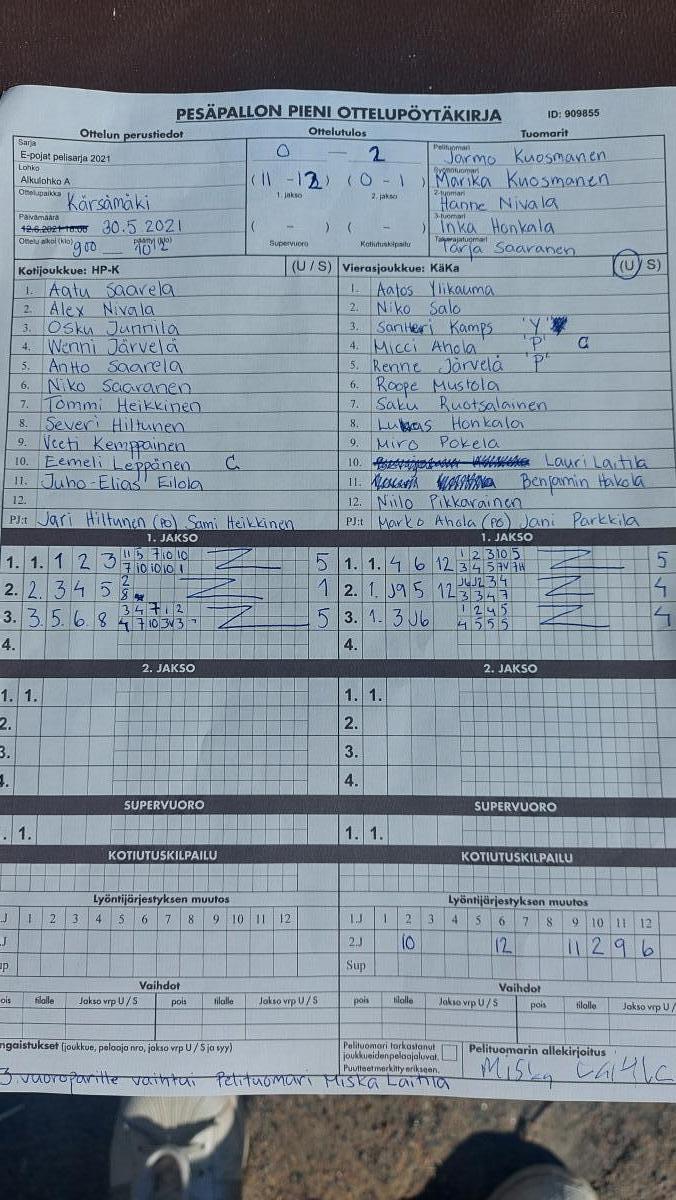 PESÄPALLON PIENI OTTELUPÖYTÄKIRJA ID: 909855
Ottelun perustiedot Ottelutulos Tuomarit
Sarja
E-pojat pelisarja 2021
Lohko
Alkulohko A
Ottelupaikka Kärsämäki
Päivämäärä
12.6.2021 30.5 2021
Ottelu alkoi (klo) 900 päättyi (klo) 1012
0 — 2
(11 - 12) (0 - 1)
1. jakso 2. jakso
( - ) ( - )
Supervuoro Kotiutuskilpailu
Pelituomari Jarmo Kuosmanen
Syöttötuomari Marika Kuosmanen
2-tuomari Hanne Nivala
3-tuomari Inka Honkala
Takarajatuomari Tarja Saaranen
Kotijoukkue: HP-K (U / S) Vierasjoukkue: KäKa (U / S)
1. Aatu Saarela 1. Aatos Ylikauma
2. Alex Nivala 2. Niko Salo
3. Osku Junnila 3. Santeri Kamps 'Y'
4. Wenni Järvelä 4. Micci Ahola 'P' C
5. Antto Saarela 5. Renne Järvelä 'P'
6. Niko Saaranen 6. Roope Mustola
7. Tommi Heikkinen 7. Saku Ruotsalainen
8. Severi Hiltunen 8. Lukas Honkala
9. Veeti Kemppainen 9. Miro Pokela
10. Eemeli Leppänen C 10. Lauri Laitila
11. Juho-Elias Eilola 11. Benjamin Hakola
12. 12. Niilo Pikkarainen
PJ:t Jari Hiltunen (PO) Sami Heikkinen PJ:t Marko Ahola (PO) Jani Parkkila
1. JAKSO 1. JAKSO
1. 1. 1 2 3 5 1. 1. 4 6 12 5
2. 2. 3 4 5 1 2. 1. J9 5 12 4
3. 3. 5. 6. 8 5 3. 1. 3 J6 4
4. 4.
2. JAKSO 2. JAKSO
1. 1. 1. 1.
2. 2.
3. 3.
4. 4.
SUPERVUORO SUPERVUORO
. 1. 1. 1.
KOTIUTUSKILPAILU KOTIUTUSKILPAILU
Lyöntijärjestyksen muutos Lyöntijärjestyksen muutos
.J 1 2 3 4 5 6 7 8 9 10 11 12 1.J 1 2 3 4 5 6 7 8 9 10 11 12
.J 2.J 10 12 11 2 9 6
up Sup
Vaihdot Vaihdot
ois tilalle Jakso vrp U / S pois tilalle Jakso vrp U / S pois tilalle Jakso vrp U / S pois tilalle Jakso vrp U /
ngaistukset (joukkue, pelaaja nro, jakso vrp U / S ja syy)
Pelituomari tarkastanut
joukkueidenpelaajaluvat.
Puutteet merkitty erikseen.
Pelituomarin allekirjoitus
Miska Laitila
3. vuoroparille vaihtui Pelituomari Miska Laitila